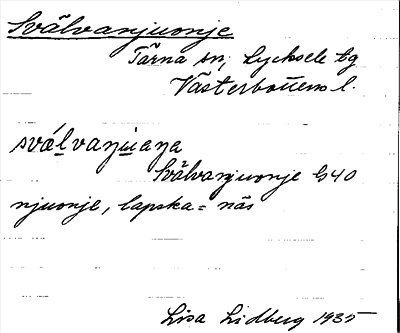 Svälvanjuonje
Tärna sn, Lycksele tg
Västerbottens l.
svǽlvaŋu̱aŋa
Svälvanjuonje G40
njuonje, lapska = näs
Lisa Lidberg 1935